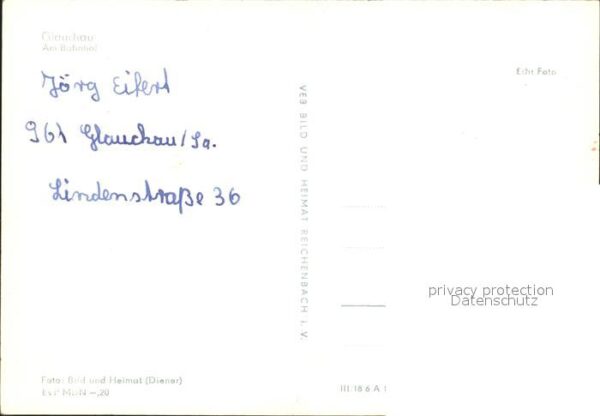 Glauchau
Am Bahnhof
Echt Foto
Jörg Eifert
961 Glauchau/Sa.
Lindenstraße 36
VEB BILD UND HEIMAT REICHENBACH i. V.
privacy protection
Datenschutz
Foto: Bild und Heimat (Diener)
EVP MDN –,20
III 18 6 A 1